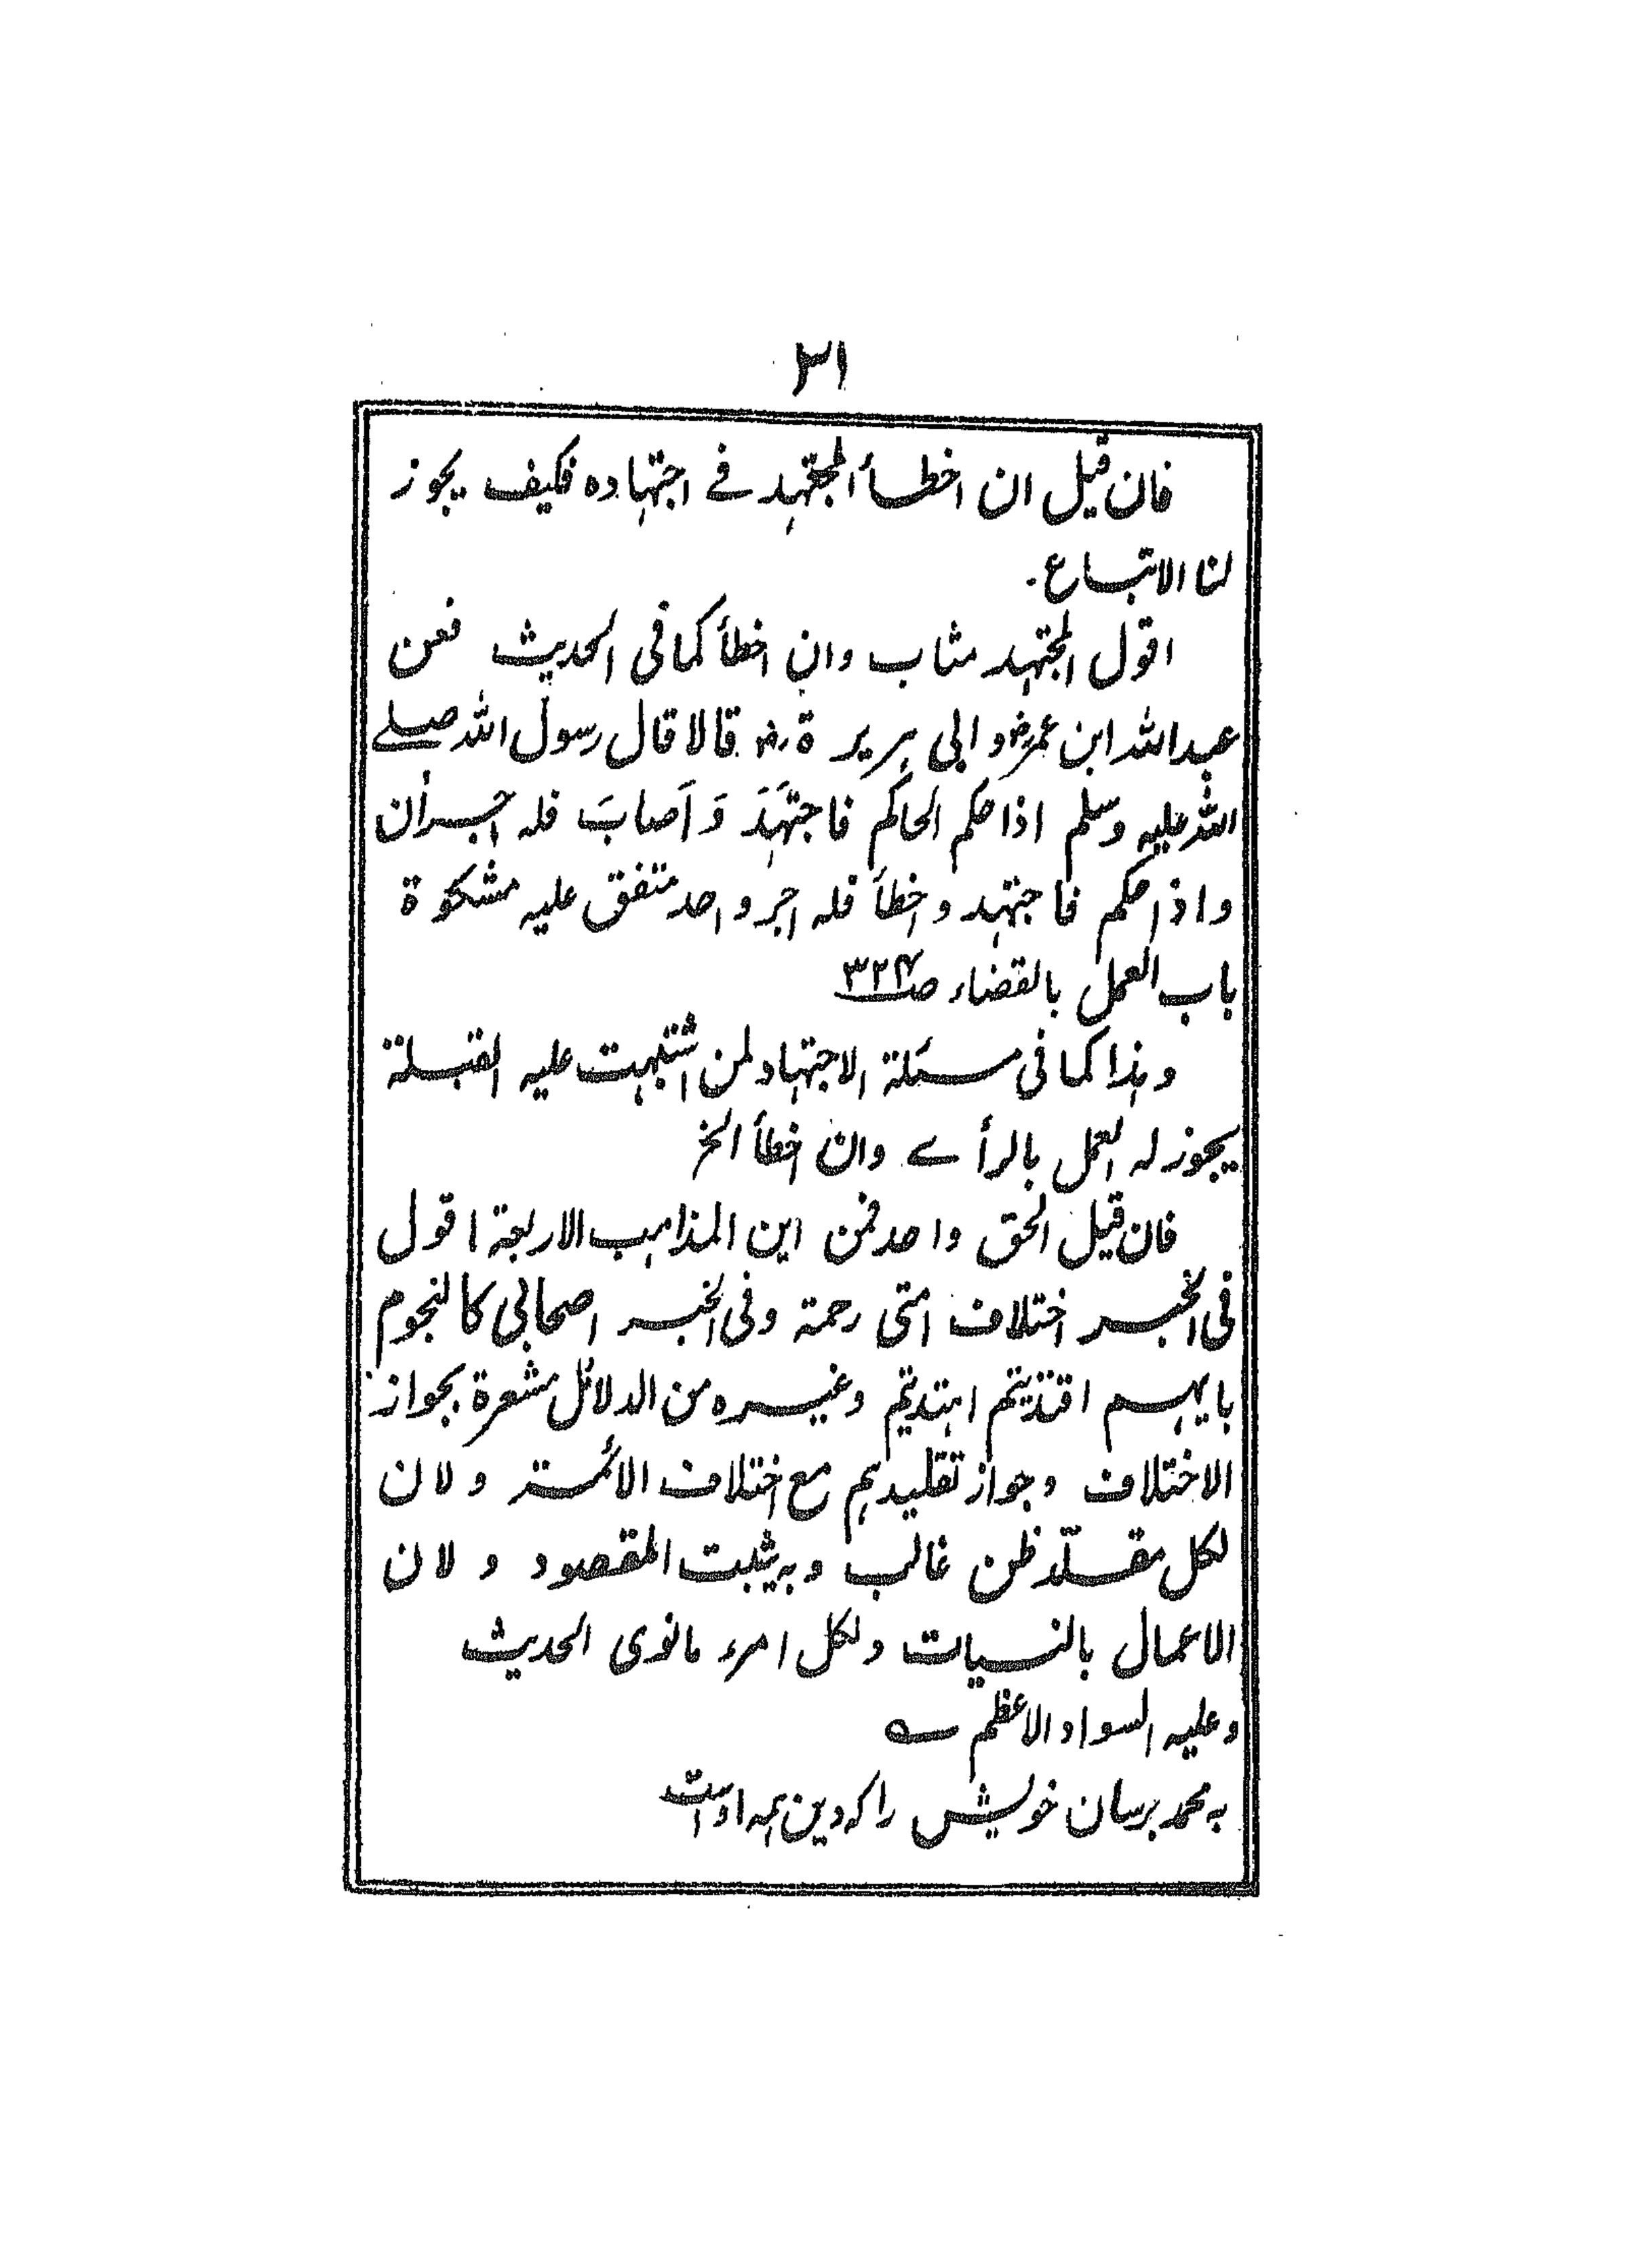 ٣١
فان قيل ان اخطأ المجتهد فے اجتهاده فكيف يجوز
لنا الاتباع۔
اقول المجتهد مثاب وان اخطأ كما فى الحديث فعن
عبد الله ابن عمرؓ و ابى هريرةؓ قالا قال رسول الله صلے
الله عليه وسلم اذا حكم الحاكم فاجتهَدَ وَ اَصابَ فله اجران
واذا حكم فاجتهد و اخطأ فله اجر واحد متفق عليه مشكوة
باب العمل بالقضاء صـ ٣٢٤
و هذا كما فى مسئلة الاجتهاد لمن اشتبهت عليه القبلة
يجوز له العمل بالرأے وان اخطأ الخ
فان قيل الحق واحد فمن اين المذاهب الاربعة اقول
فى الخبر اختلاف امتى رحمة وفى الخبر اصحابى كالنجوم
بايهم اقتديتم اهتديتم وغيره من الدلائل مشعرة بجواز
الاختلاف وجواز تقليدهم مع اختلاف الائمة ولان
لكل مقلّد ظن غالب وبه يثبت المقصود ولان
الاعمال بالنيات ولكل امرء مانوى الحديث
وعليه السواد الاعظم ؎
به محمد برسان خویش را که دین همه اوست